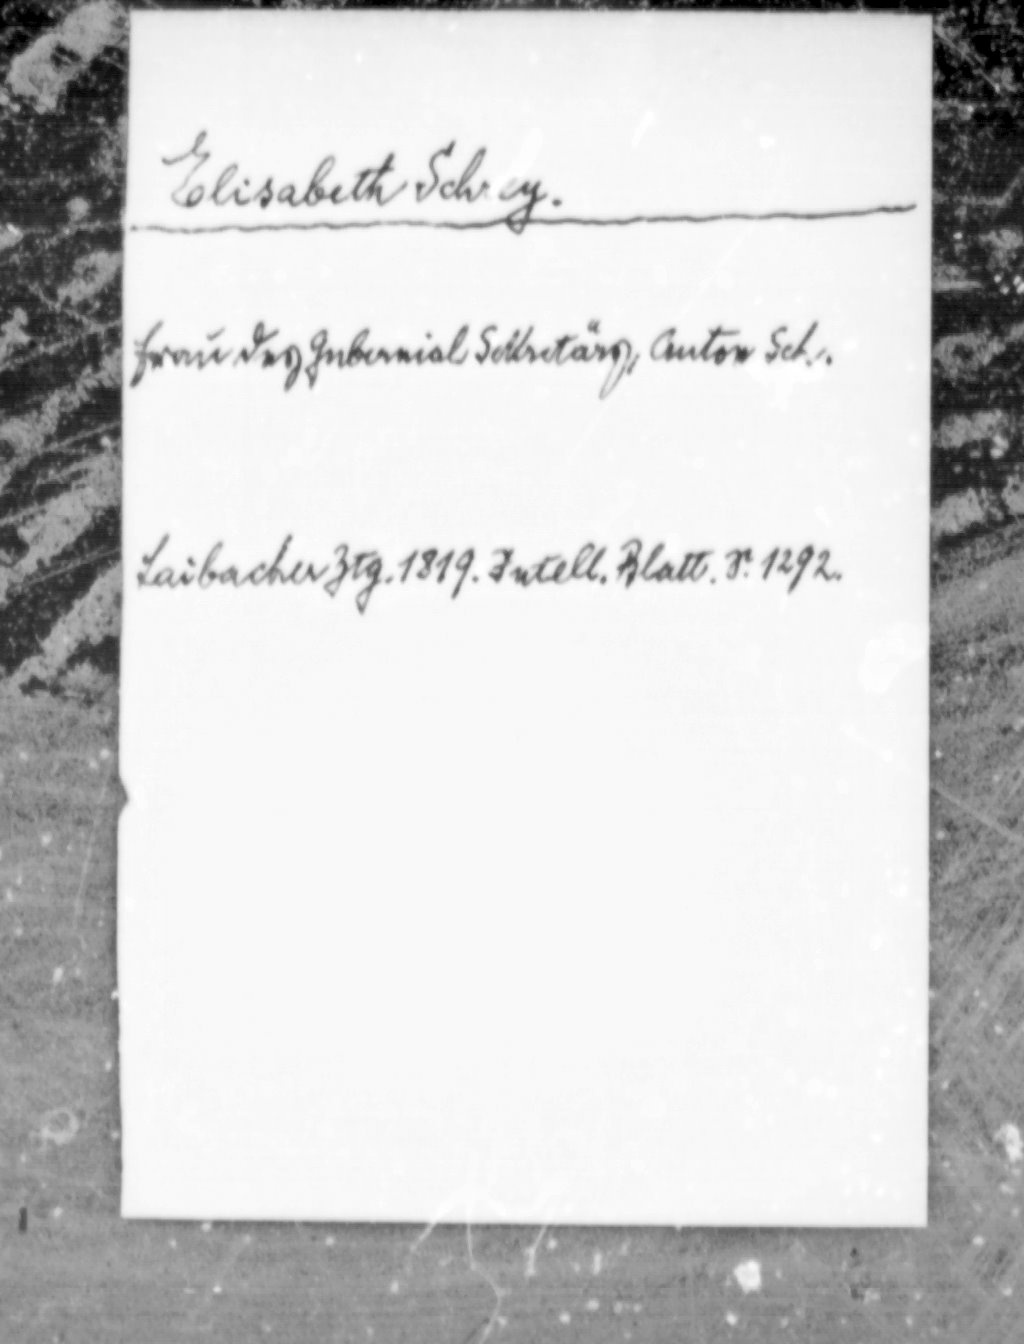 Elisabeth Schrey.
Frau des Gubernial Sekretärs, Anton Sch.
Laibacher Ztg. 1819. Intell. Blatt. S. 1292.